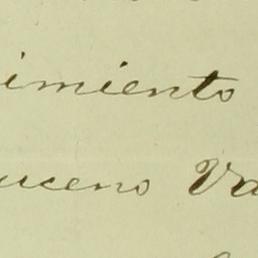 imiento
uceno Va